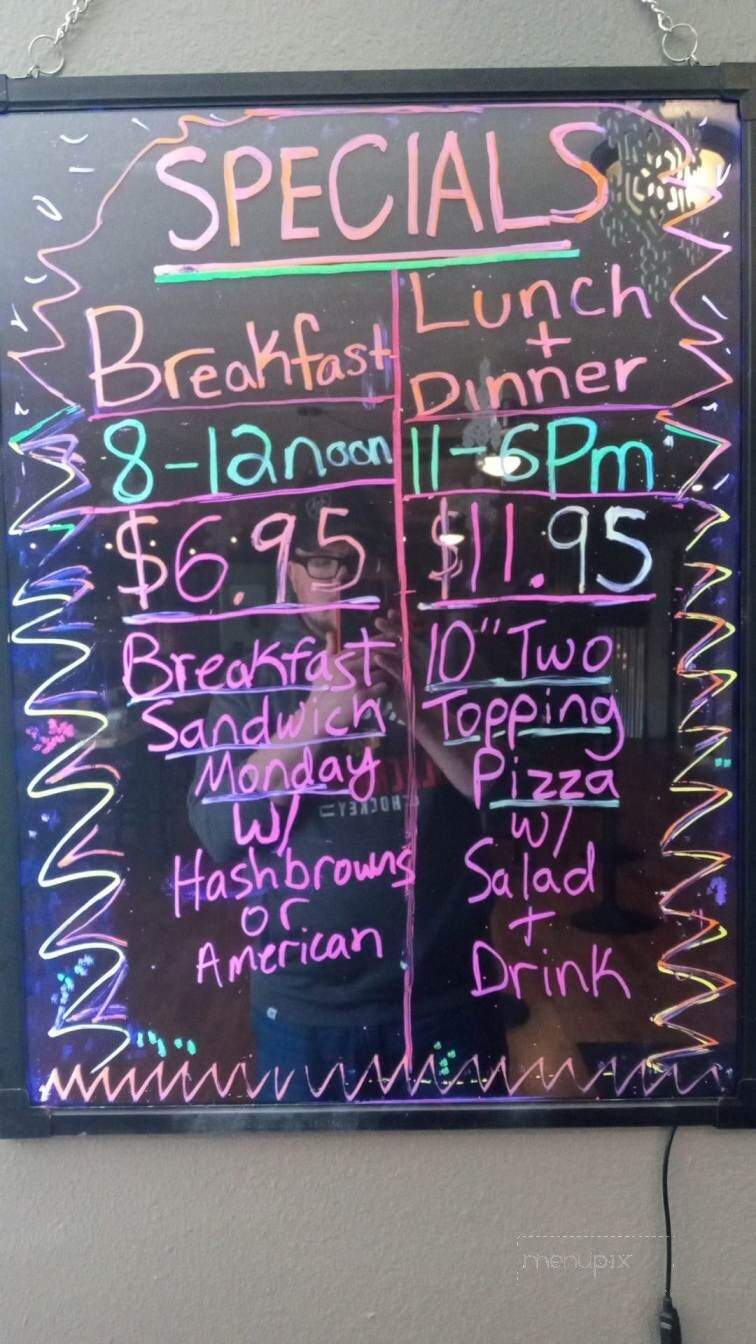 SPECIALS
Breakfast
8-12noon
$6.95
Breakfast
Sandwich
Monday
w/
Hashbrowns
or
American
Lunch
+
Dinner
11-6Pm
$11.95
10" Two
Topping
Pizza
w/
Salad
+
Drink
HOCKEY
menupix